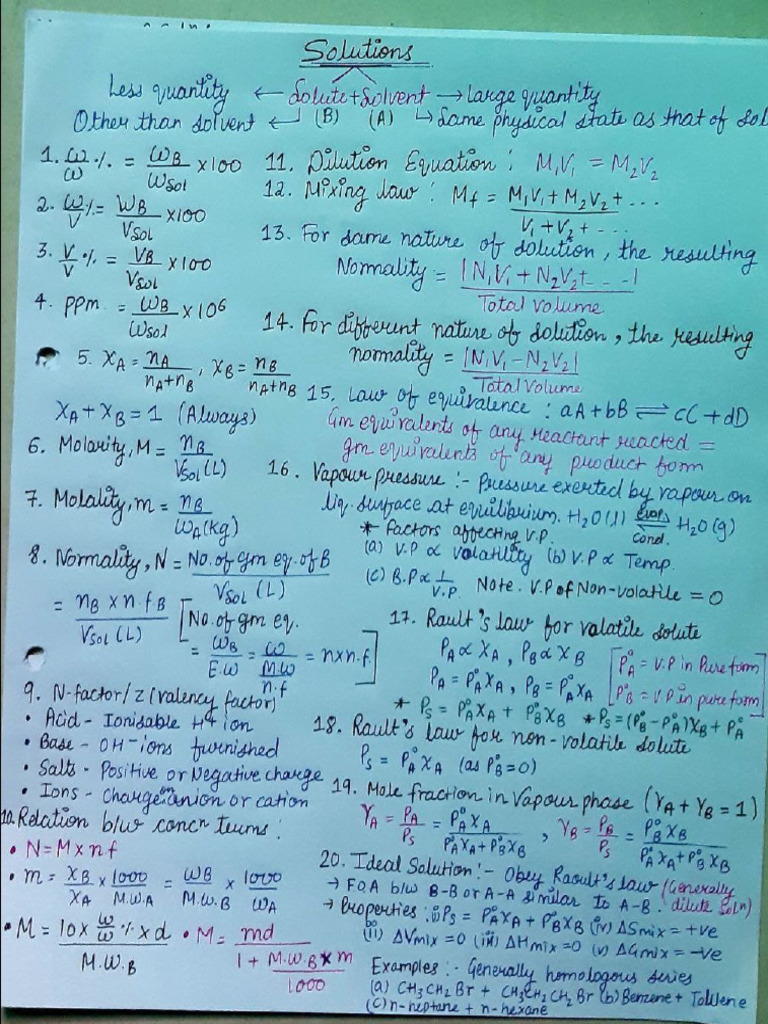 Solutions
Less quantity ← Solute + Solvent → Large quantity
Other than solvent ↲ (B) (A) ↳ Same physical state as that of sol
1. w/w % = wB/wsol × 100
2. w/V % = WB/Vsol × 100
3. V/V % = VB/Vsol × 100
4. ppm = wB/wsol × 10⁶
5. XA = nA/(nA+nB), XB = nB/(nA+nB)
XA + XB = 1 (Always)
6. Molarity, M = nB/Vsol (L)
7. Molality, m = nB/wA (kg)
8. Normality, N = No. of gm eq. of B/Vsol (L)
= nB × n.fB/Vsol (L) [No. of gm eq.
= wB/E.w = w/(M.w/n.f) = n×n.f]
9. N-factor/z (valency factor)
• Acid - Ionisable H⁺ ion
• Base - OH⁻ ions furnished
• Salts - Positive or Negative charge
• Ions - Charge on anion or cation
10. Relation b/w concn terms :
• N = M × nf
• m = XB/XA × 1000/M.W.A = wB/M.W.B × 1000/wA
• M = 10 × w/w % × d/M.W.B • M = md/(1 + M.W.B × m/1000)
11. Dilution Equation : M₁V₁ = M₂V₂
12. Mixing law : Mf = (M₁V₁ + M₂V₂ + ...)/(V₁ + V₂ + ...)
13. For same nature of solution, the resulting
Normality = |N₁V₁ + N₂V₂ + ...|/Total Volume
14. For different nature of solution, the resulting
normality = |N₁V₁ − N₂V₂|/Total Volume
15. Law of equivalence : aA + bB ⇌ cC + dD
Gm equivalents of any reactant reacted =
gm equivalents of any product form
16. Vapour pressure :- Pressure exerted by vapour on
liq. surface at equilibrium. H₂O(l) ⇌ H₂O(g) Evap. Cond.
* Factors affecting V.P.
(a) V.P ∝ volatility (b) V.P ∝ Temp.
(c) B.P ∝ 1/V.P. Note. V.P of Non-volatile = 0
17. Rault's law for volatile solute
PA ∝ XA, PB ∝ XB [P°A = V.P in Pure form
PA = P°A XA, PB = P°A XA P°B = V.P in pure form]
* Ps = P°A XA + P°B XB * Ps = (P°B − P°A)XB + P°A
18. Rault's law for non-volatile solute
Ps = P°A XA (as P°B = 0)
19. Mole fraction in Vapour phase (YA + YB = 1)
YA = PA/Ps = P°A XA/(P°A XA + P°B XB), YB = PB/Ps = P°B XB/(P°A XA + P°B XB)
20. Ideal Solution :- Obey Raoult's law (Generally
→ FOA b/w B-B or A-A similar to A-B. dilute Soln)
→ Properties : (i) Ps = P°A XA + P°B XB (iv) ΔSmix = +ve
(ii) ΔVmix = 0 (iii) ΔHmix = 0 (v) ΔGmix = −ve
Examples :- Generally homologous series
(a) CH₃CH₂Br + CH₃CH₂CH₂Br (b) Benzene + Toluene
(c) n-heptane + n-hexane